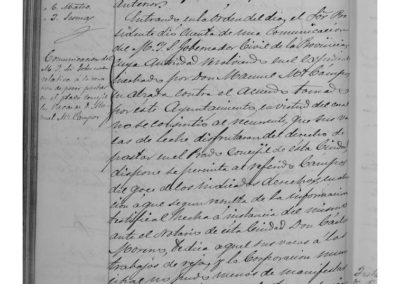 " C. Abatio
" Z. Gomar
Comunicacion del
M. I. S. Gobernador
relativa à la
de poder pastar
en el prado concejil
las vacas de D. Ma-
nuel Mª Campos
anterior.
Entrando en la órden del dia, el Sor. Pre-
sidente dió cuenta de una Comunicacion
del M. I. S. Gobernador Civil de la Provincia,
cuya Autoridad resolviendo en el expediente
incohado por Don Manuel Mª Campos
en alzada contra el Acuerdo tomado
por este Ayuntamiento, en virtud del cual
no se consintió al recurrente, que sus va-
cas de leche disfrutaran del derecho de
pastar en el Prado Concejil de esta Ciudad,
dispone se permita al referido Campos
el goce de los indicados derechos, en aten-
cion a que segun resulta de la informacion
testifical hecha à instancia del mismo
ante el Notario de esta Ciudad Don Carlos
Moreno, dedica aquel sus vacas à los
trabajos de reja, y la Corporacion muni-
cipal no pudo menos de manifestar